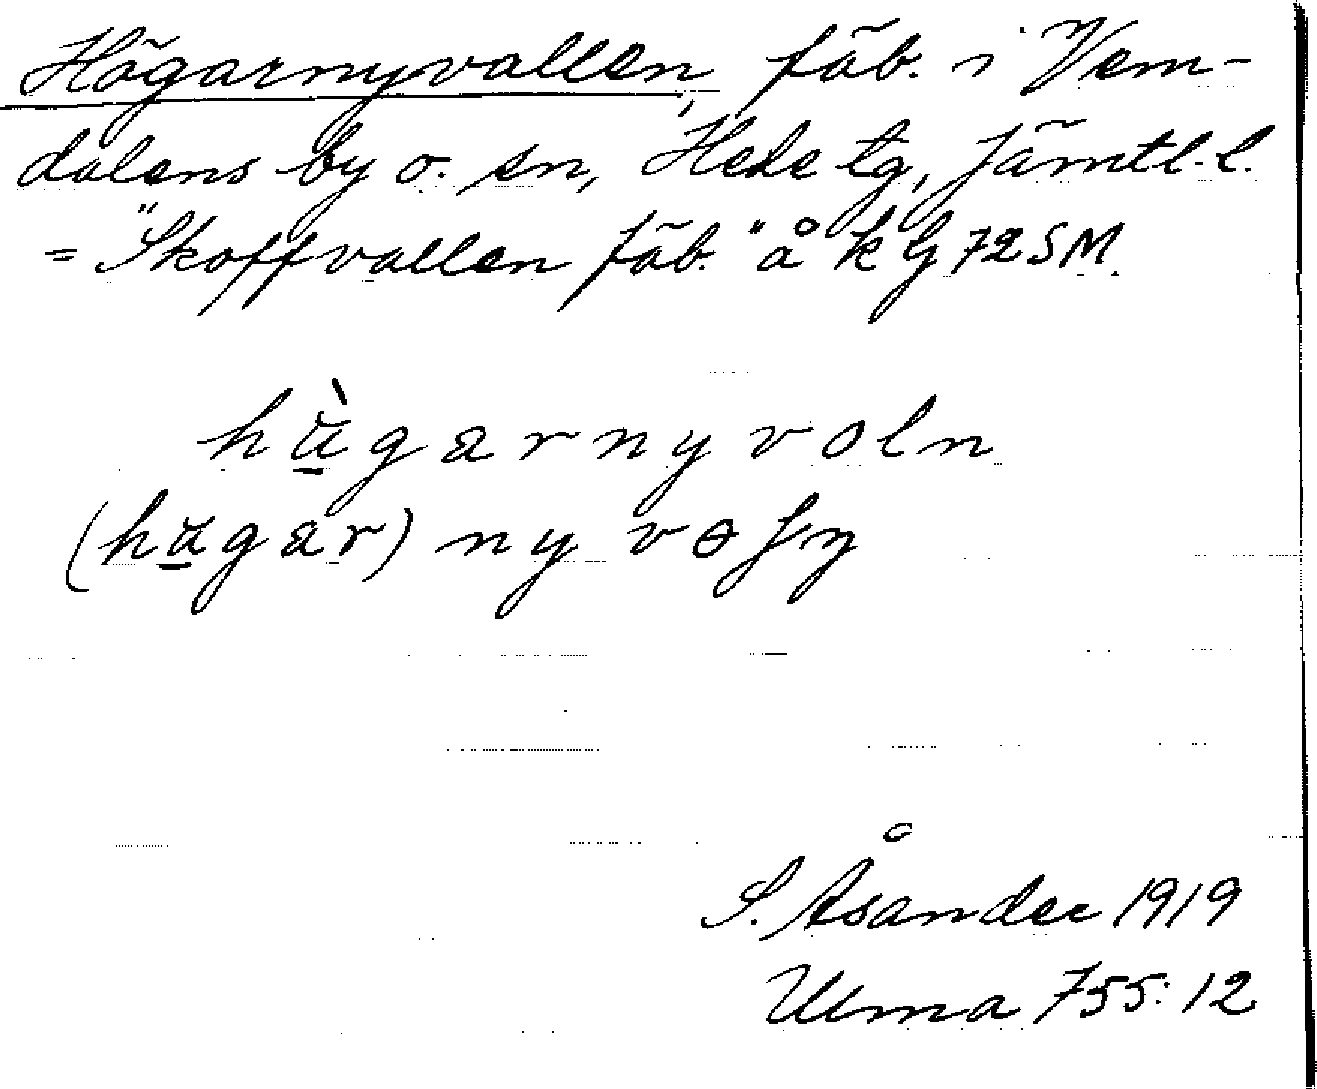 Högarnyvallen, fäb. i Vem-
dalens by o. sn, Hede tg, Jämtl. l.
= "Skoffvallen fäb." å k G 72 SM.
hù̱garnyvoln
(hu̱gar) ny vɵ
S. Åsander 1919
Ulma 755:12